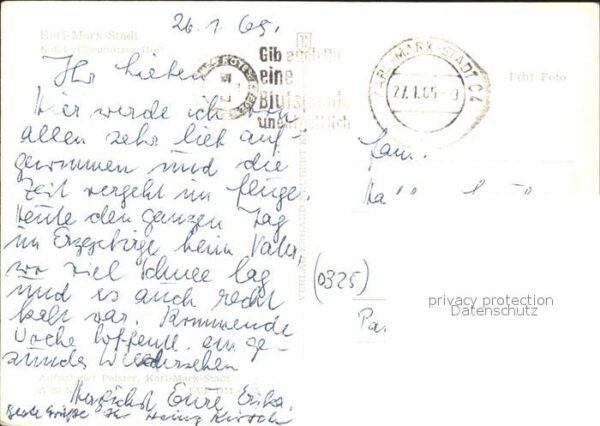 26.1.65.
Karl-Marx-Stadt
Hotel "Chemnitzer Hof"
Ihr Lieben
Hier werde ich von
allen sehr lieb auf-
genommen und die
Zeit vergeht im Fluge.
Heute den ganzen Tag
im Erzgebirge beim Vater
wo viel Schnee lag
und es auch recht
kalt war. Kommende
Woche hoffentl. ein ge-
sundes Wiedersehen
Herzlichst Eure Erika.
Beste Grüße Ihr Heinz Kirsch
Aufnahme: Polster, Karl-Marx-Stadt
Gib auch Du
eine
Blutspende
unentgeltlich
KARL-MARX-STADT C4
27.1.65-9
Echt Foto
VERLAG ERHARD NEUBERT K
Fam.
(0325)
privacy protection
Datenschutz